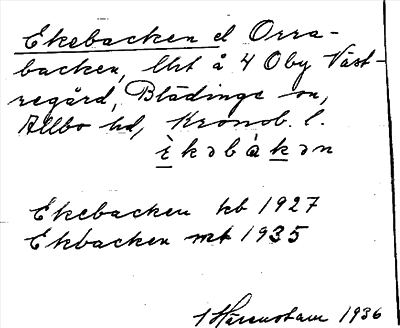 Ekebacken el Orra-
backen, lht å 4 Oby Väst-
regård, Blädinge sn,
Allbo hd, Kronob. l.
èkəbàkən
Ekebacken kb 1927
Ekbacken mt 1935
1936